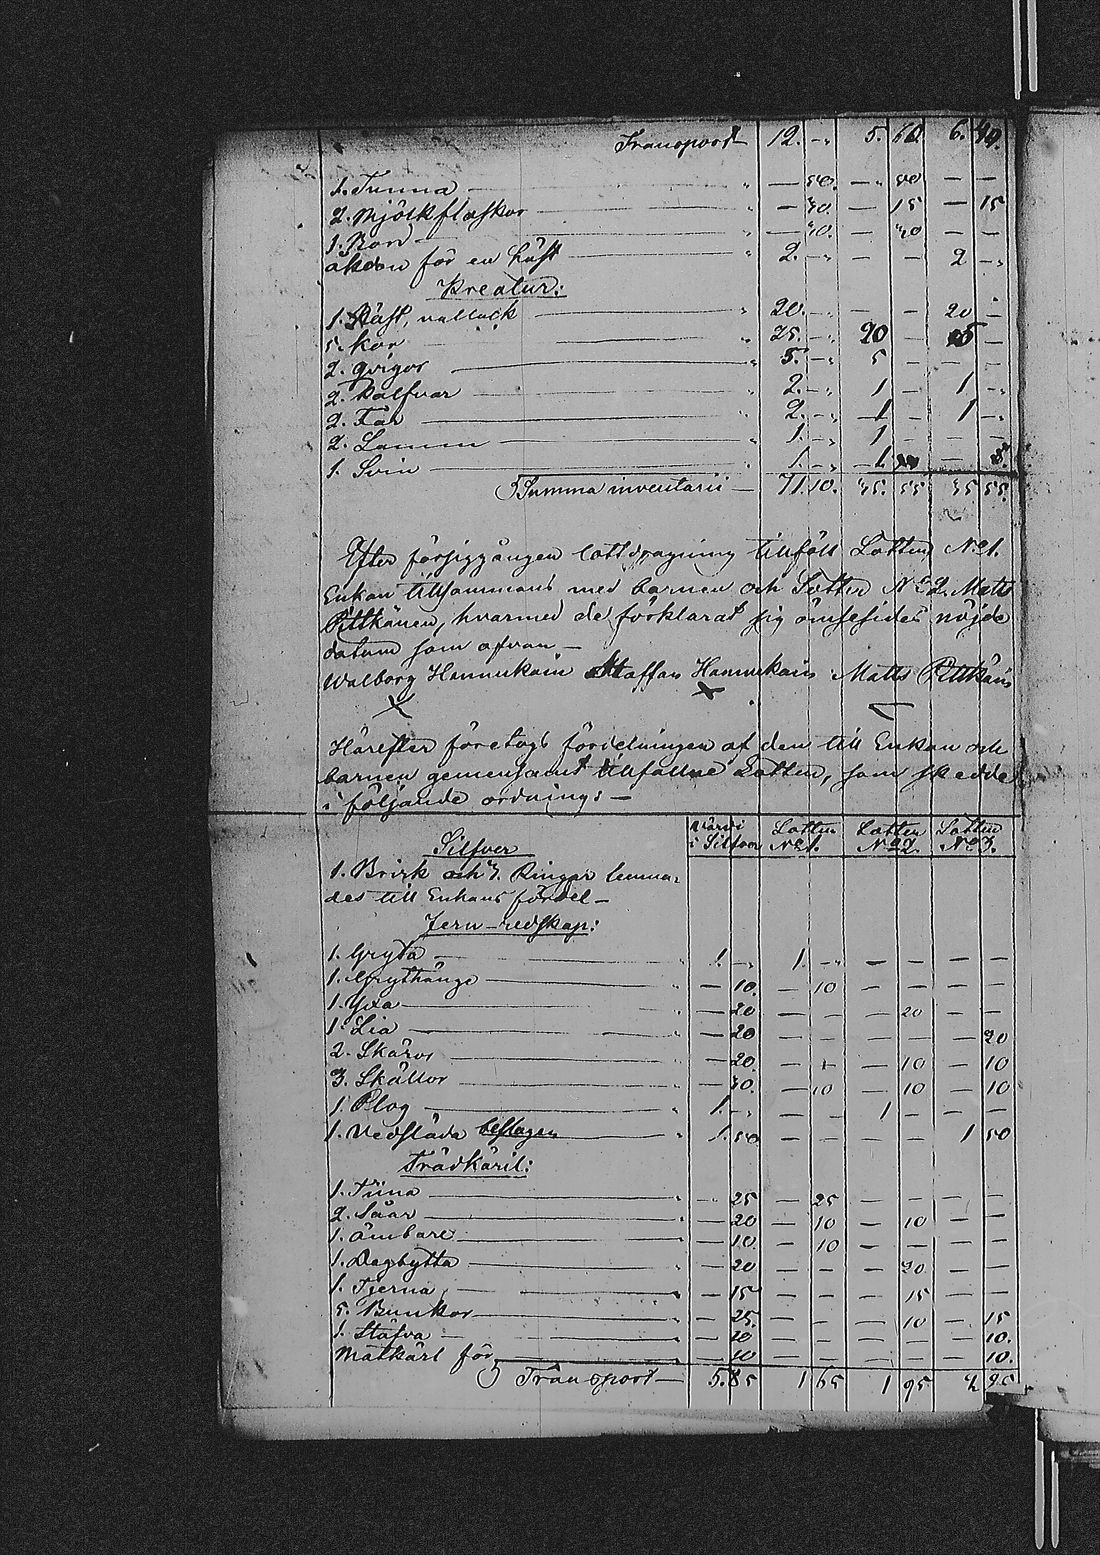 Transport 12. -„ 5. 60. 6. 40.
1. Tunna — — 80. — 80 — —
2. Mjölkflaskor — — 30. — 15 — 15
1. Bord — — 40. — 40 — —
åkdon för en häst — 2. -„ — — 2 -„
Kreatur:
1. Häst, vallack — 20. -„ — — 20 —
5. Kor — 25. -„ 20 — 5 —
2. qvigor — 5. -„ 5 — — —
2. Kalfvar — 2. -„ 1 — 1 -„
2. Får — 2. -„ 1 — 1 -„
2. Lamm — 1. -„ 1 — — —
1. Svin — 1. -„ 1 —
Summa inventarii — 71. 10. 35. 55 35 55.
Efter försiggången lottdragning tillföll Lotten No 1.
Enkan tillsammans med barnen och Lotten No 2. Matts
Pitkänen, hvarmed de förklarat sig ömsesides nöjde
datum som ofvan —
Walborg Hannukain Staffan Hannukain Matts Pitkäin
Härefter företogs fördelningen af den till Enkan och
barnen gemensamt tillfallne Lotten, som skedde
i följande ordning: —
Värde i Silfver Lotten No 1. Lotten No 2. Lotten No 3.
Silfver
1. Brisk och 3. Ringar lemna-
des till Enkans fördel —
Jern-redskap:
1. Gryta — 1. -„ 1. -„ — — — —
1. Grythänge — — 10. — 10 — — — —
1. Yxa — — 20 — — — 20 — —
1. Lia — — 20 — — — — — 20
2. Skäror — — 20. — — — 10 — 10
3. Skällor — — 30. — 10 — 10 — 10
1. Plog — 1. -„ — — 1 — — —
1. Vedsläda beslagen — 1. 50 — — — — 1 50
Trädkäril:
1. Tina — — 25 — 25 — — — —
2. Såar — — 20 — 10 — 10 — —
1. ämbare — — 10. — 10 — — — —
1. Degbytta — — 20 — — — 20 — —
1. Tjerna — — 15 — — — 15 — —
5. Bunkar — — 25. — — — 10 — 15
1. Stäfva — — 10 — — — — — 10.
Matkärl för — — 10 — — — — — 10.
Transport — 5. 85 1 65 1 95 2 25